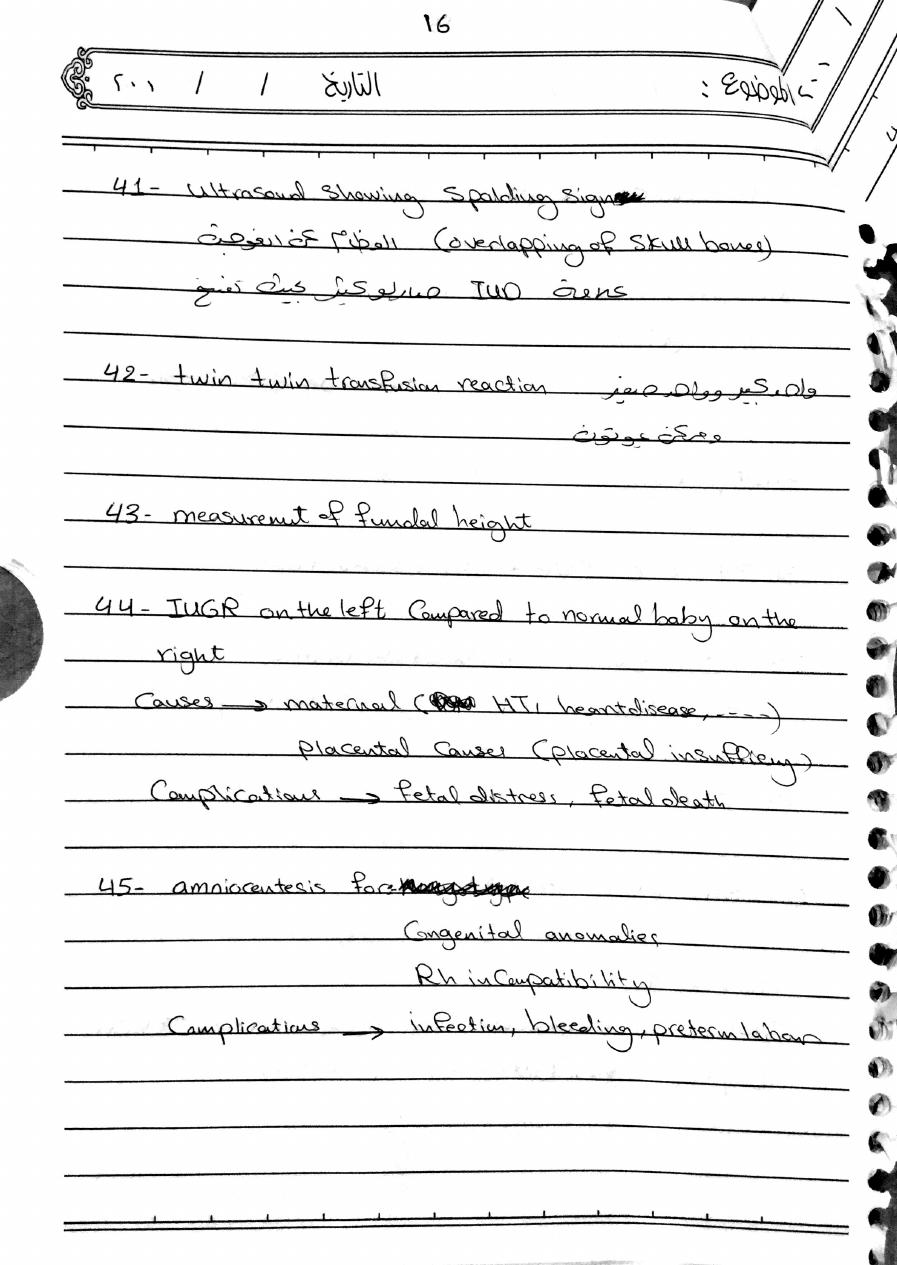 16
الموضوع :
التاريخ / / ٢٠٠١
41- Ultrasound showing Spalding sign
(overlapping of skull bones) العظام
IUD
42- twin twin transfusion reaction واحد كبير وواحد صغير
وممكن يموتون
43- measuremnt of fundal height
44- IUGR on the left Compared to normal baby on the
right
Causes → maternal ( HT, heart disease, ----)
placental Causes (placental insufficiency)
Complications → fetal distress, fetal death
45- amniocentesis for
Congenital anomalies
Rh inCompatibility
Complications → infection, bleeding, preterm labour